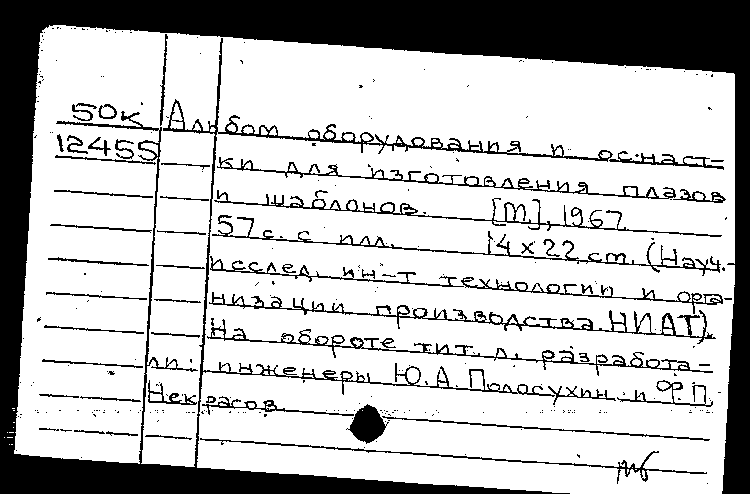 50к Альбом оборудования и оснаст=
12455 ки для изготовления плазов
и шаблонов. [М.], 1967.
57 с. с илл. 14 x 22 см. (Науч.-
исслед. ин-т технологии и орга-
низации производства НИАТ).
На обороте тит. л. разработа=
ли: инженеры Ю.А. Полосухин и Ф.П.
Некрасов